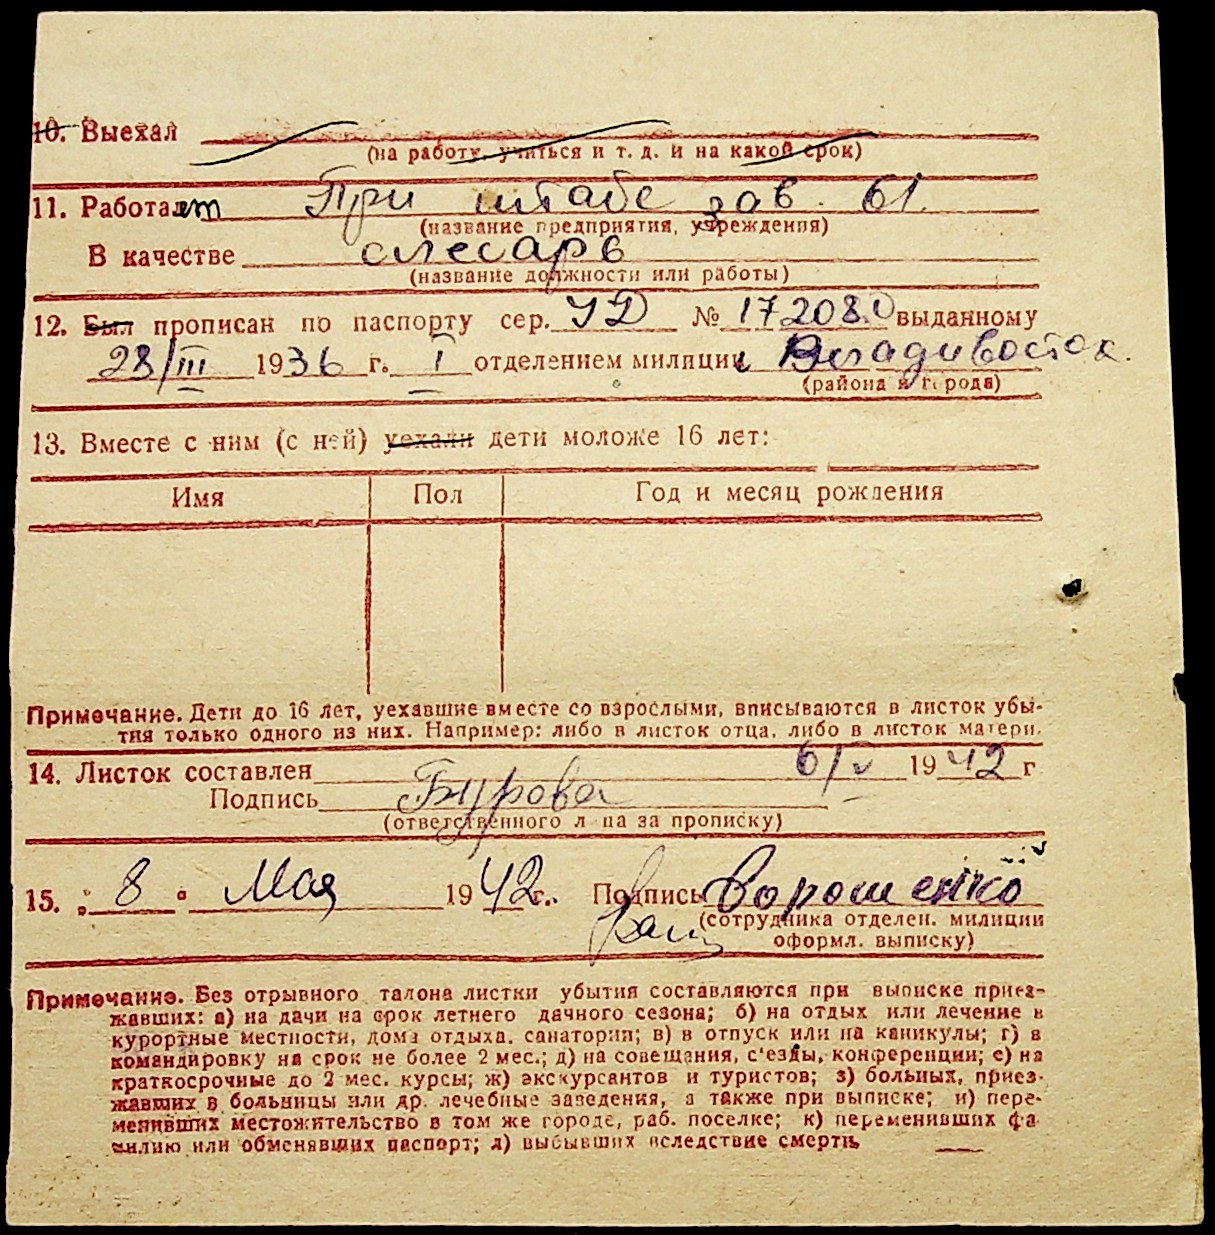 10. Выехал
(на работу, учиться и т. д. и на какой срок)
11. Работает При штабе зав. 61.
(название предприятия, учреждения)
В качестве слесарь
(название должности или работы)
12. Был прописан по паспорту сер. УД № 172080 выданному
28/III 1936 г. I отделением милиции Владивосток.
(района и города)
13. Вместе с ним (с ней) уехали дети моложе 16 лет:
Имя Пол Год и месяц рождения
Примечание. Дети до 16 лет, уехавшие вместе со взрослыми, вписываются в листок убы-
тия только одного из них. Например: либо в листок отца, либо в листок матери.
14. Листок составлен 6/V 1942 г
Подпись Бурова
(ответственного лица за прописку)
15. „ 8 " Мая 1942 г. Подпись Ворошенко
(сотрудника отделен. милиции
оформл. выписку)
Примечание. Без отрывного талона листки убытия составляются при выписке приез-
жавших: а) на дачи на срок летнего дачного сезона; б) на отдых или лечение в
курортные местности, дома отдыха, санатории; в) в отпуск или на каникулы; г) в
командировку на срок не более 2 мес.; д) на совещания, с'езды, конференции; е) на
краткосрочные до 2 мес. курсы; ж) экскурсантов и туристов; з) больных, приез-
жавших в больницы или др. лечебные заведения, а также при выписке; и) пере-
менивших местожительство в том же городе, раб. поселке; к) переменивших фа-
милию или обменявших паспорт; л) выбывших вследствие смерти